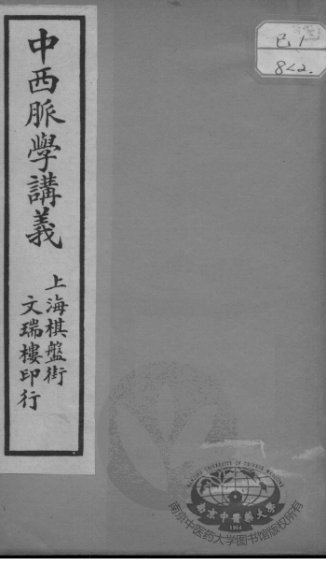 中西脈學講義
上海棋盤街
文瑞樓印行
南京中医药大学图书馆版权所有
南京中醫藥大學
1954